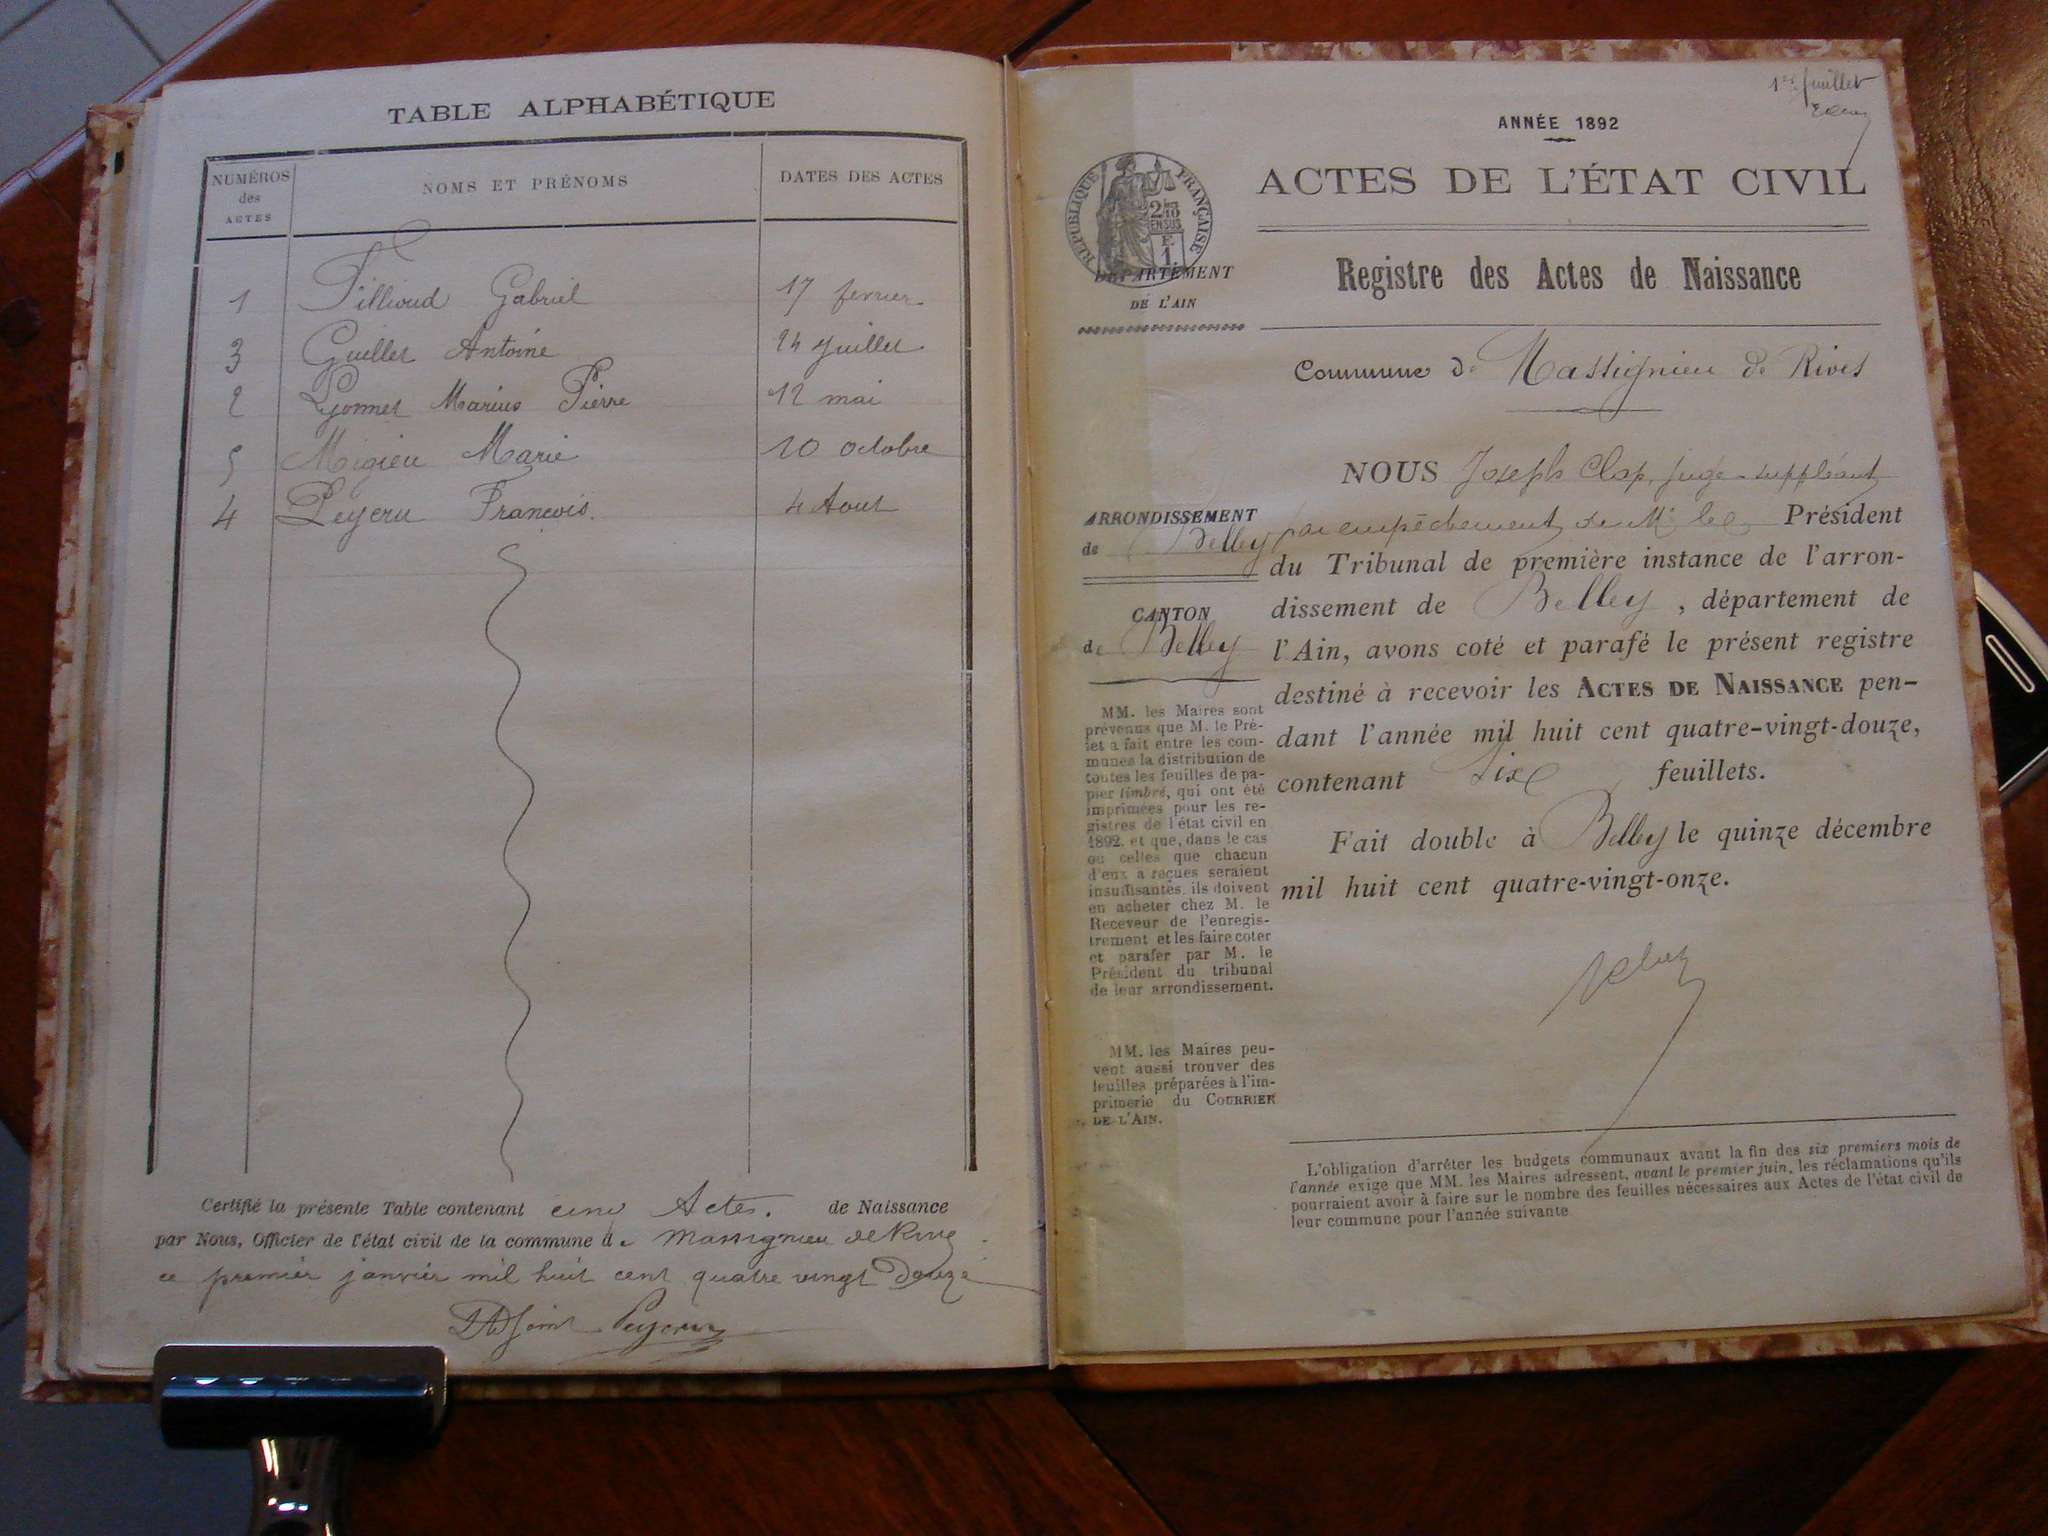 TABLE ALPHABÉTIQUE
NUMÉROS des ACTES
NOMS ET PRÉNOMS
DATES DES ACTES
1 Fillioud Gabriel 17 fevrier
3 Guillet Antoine 24 Juillet
2 Lyonnet Marius Pierre 12 mai
5 Migieu Marie 10 octobre
4 Peyeru François. 4 Aout
Certifié la présente Table contenant cinq Actes. de Naissance
par Nous, Officier de l'état civil de la commune de Massignieu de Rives
ce premier janvier mil huit cent quatre vingt Douze
L'Adjoint Peyeru
1er feuillet
ANNÉE 1892
ACTES DE L'ÉTAT CIVIL
RÉPUBLIQUE FRANÇAISE
2/10 EN SUS
F. 1.
DÉPARTEMENT
DE L'AIN
Registre des Actes de Naissance
Commune de Massignieu de Rives
ARRONDISSEMENT
de Belley
CANTON
de Belley
MM. les Maires sont
prévenus que M. le Pré-
fet a fait entre les com-
munes la distribution de
toutes les feuilles de pa-
pier timbré, qui ont été
imprimées pour les re-
gistres de l'état civil en
1892. et que, dans le cas
ou celles que chacun
d'eux a reçues seraient
insuffisantes. ils doivent
en acheter chez M. le
Receveur de l'enregis-
trement et les faire coter
et parafer par M. le
Président du tribunal
de leur arrondissement.
MM. les Maires peu-
vent aussi trouver des
feuilles préparées à l'im-
primerie du COURRIER
DE L'AIN.
NOUS Joseph Clap, juge-suppléant
par empêchement de Mr le Président
du Tribunal de première instance de l'arron-
dissement de Belley, département de
l'Ain, avons coté et parafé le présent registre
destiné à recevoir les ACTES DE NAISSANCE pen-
dant l'année mil huit cent quatre-vingt-douze,
contenant six feuillets.
Fait double à Belley le quinze décembre
mil huit cent quatre-vingt-onze.
L'obligation d'arrêter les budgets communaux avant la fin des six premiers mois de
l'année exige que MM. les Maires adressent, avant le premier juin, les réclamations qu'ils
pourraient avoir à faire sur le nombre des feuilles nécessaires aux Actes de l'état civil de
leur commune pour l'année suivante